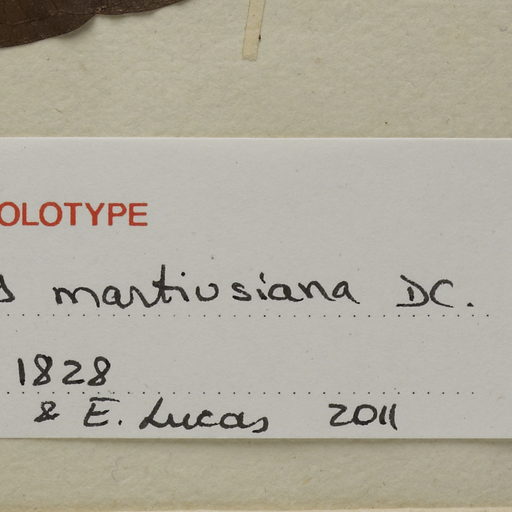 OLOTYPE
martiusiana DC.
1828
& E. Lucas 2011